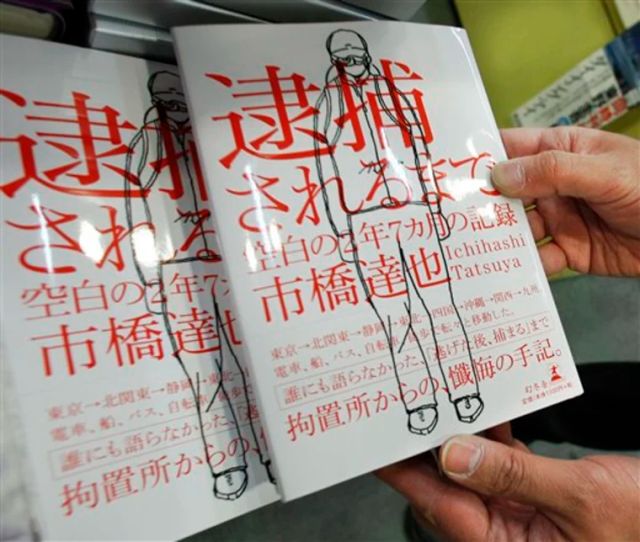 逮捕
されるまで
空白の2年7カ月の記録
市橋達也
Ichihashi
Tatsuya
東京→北関東→静岡→東北→四国→沖縄→関西→九州。
電車、船、バス、自転車、徒歩で転々と移動した。
誰にも語らなかった、「逃げた後、捕まる」まで
拘置所からの、懺悔の手記。
幻冬舎
逮捕
される
空白の2年7
市橋達也
東京→北関東→静岡→東北
電車、船、バス、自転車、
誰にも語らなかった、「逃
拘置所からの、